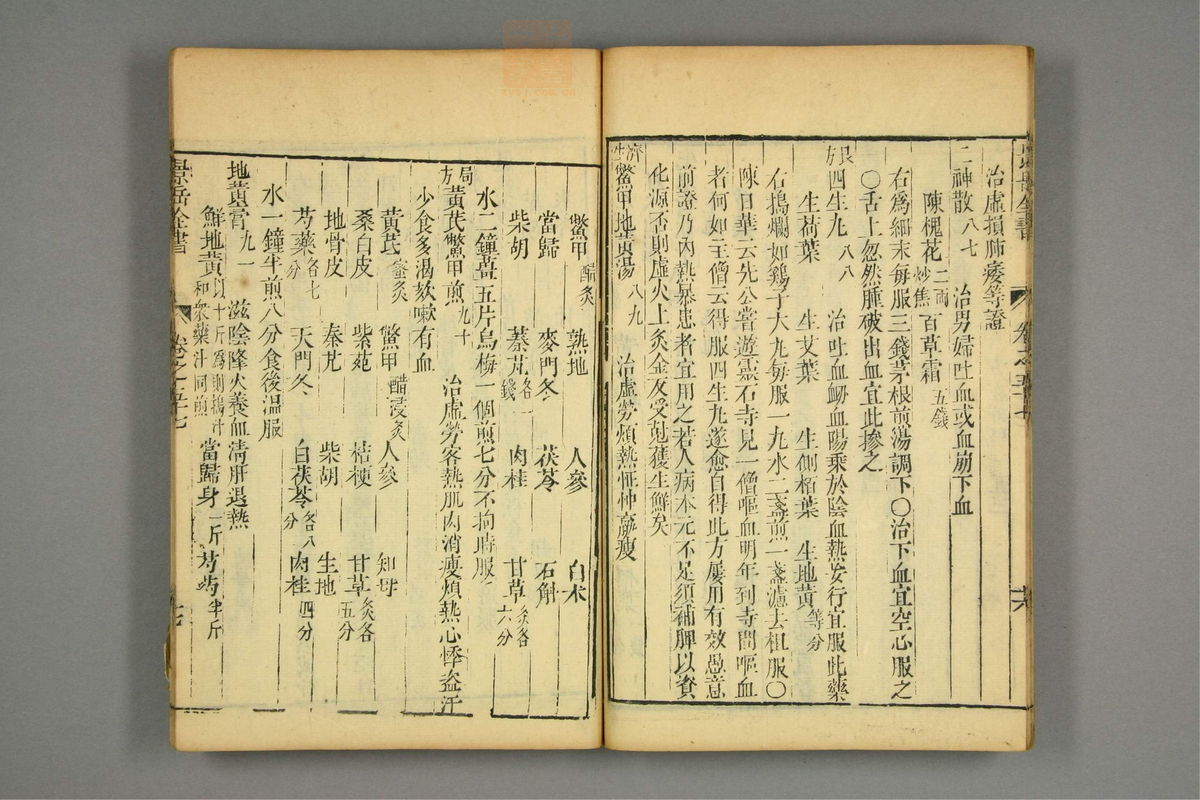 景岳全書 卷之五十七
治虛損肺痿等證
二神散 八七 治男婦吐血或血崩下血
陳槐花 二兩炒焦 百草霜 五錢
右爲細末每服三錢茅根煎湯調下○治下血宜空心服之
○舌上忽然腫破出血宜此摻之
良方四生丸 八八 治吐血衂血陽乗於陰血熱妄行宜服此藥
生荷葉 生艾葉 生側栢葉 生地黃 等分
右搗爛如鷄子大丸每服一丸水二盞煎一盞濾去柤服○
陳日華云先公嘗遊靈石寺見一僧嘔血明年到寺問嘔血
者何如主僧云得服四生丸遂愈自得此方屢用有效愚意
前證乃內熱暴患者宜用之若人病本元不足須補脾以資
化源否則虛火上炎金反受尅獲生鮮矣
濟生鱉甲地黃湯 八九 治虛勞煩熱怔忡羸瘦
鱉甲 醋炙 熟地 人參 白术
當歸 麥門冬 茯苓 石斛
柴胡 秦艽 各一錢 肉桂 甘草 炙各六分
水二鐘薑五片烏梅一個煎七分不拘時服
局方黃芪鱉甲煎 九十 治虛勞客熱肌肉消瘦煩熱心悸盗汗
少食多渴欬嗽有血
黃芪 蜜炙 鱉甲 醋浸炙 人參 知母
桑白皮 紫菀 桔梗 甘草 炙各五分
地骨皮 秦艽 柴胡 生地
芍藥 各七分 天門冬 白茯苓 各八分 肉桂 四分
水一鐘半煎八分食後溫服
地黃膏 九一 滋陰降火養血清肝退熱
鮮地黃 以十斤爲則搗汁和衆藥汁同煎 當歸身 一斤 芍藥 半斤
景岳全書 卷之五十七